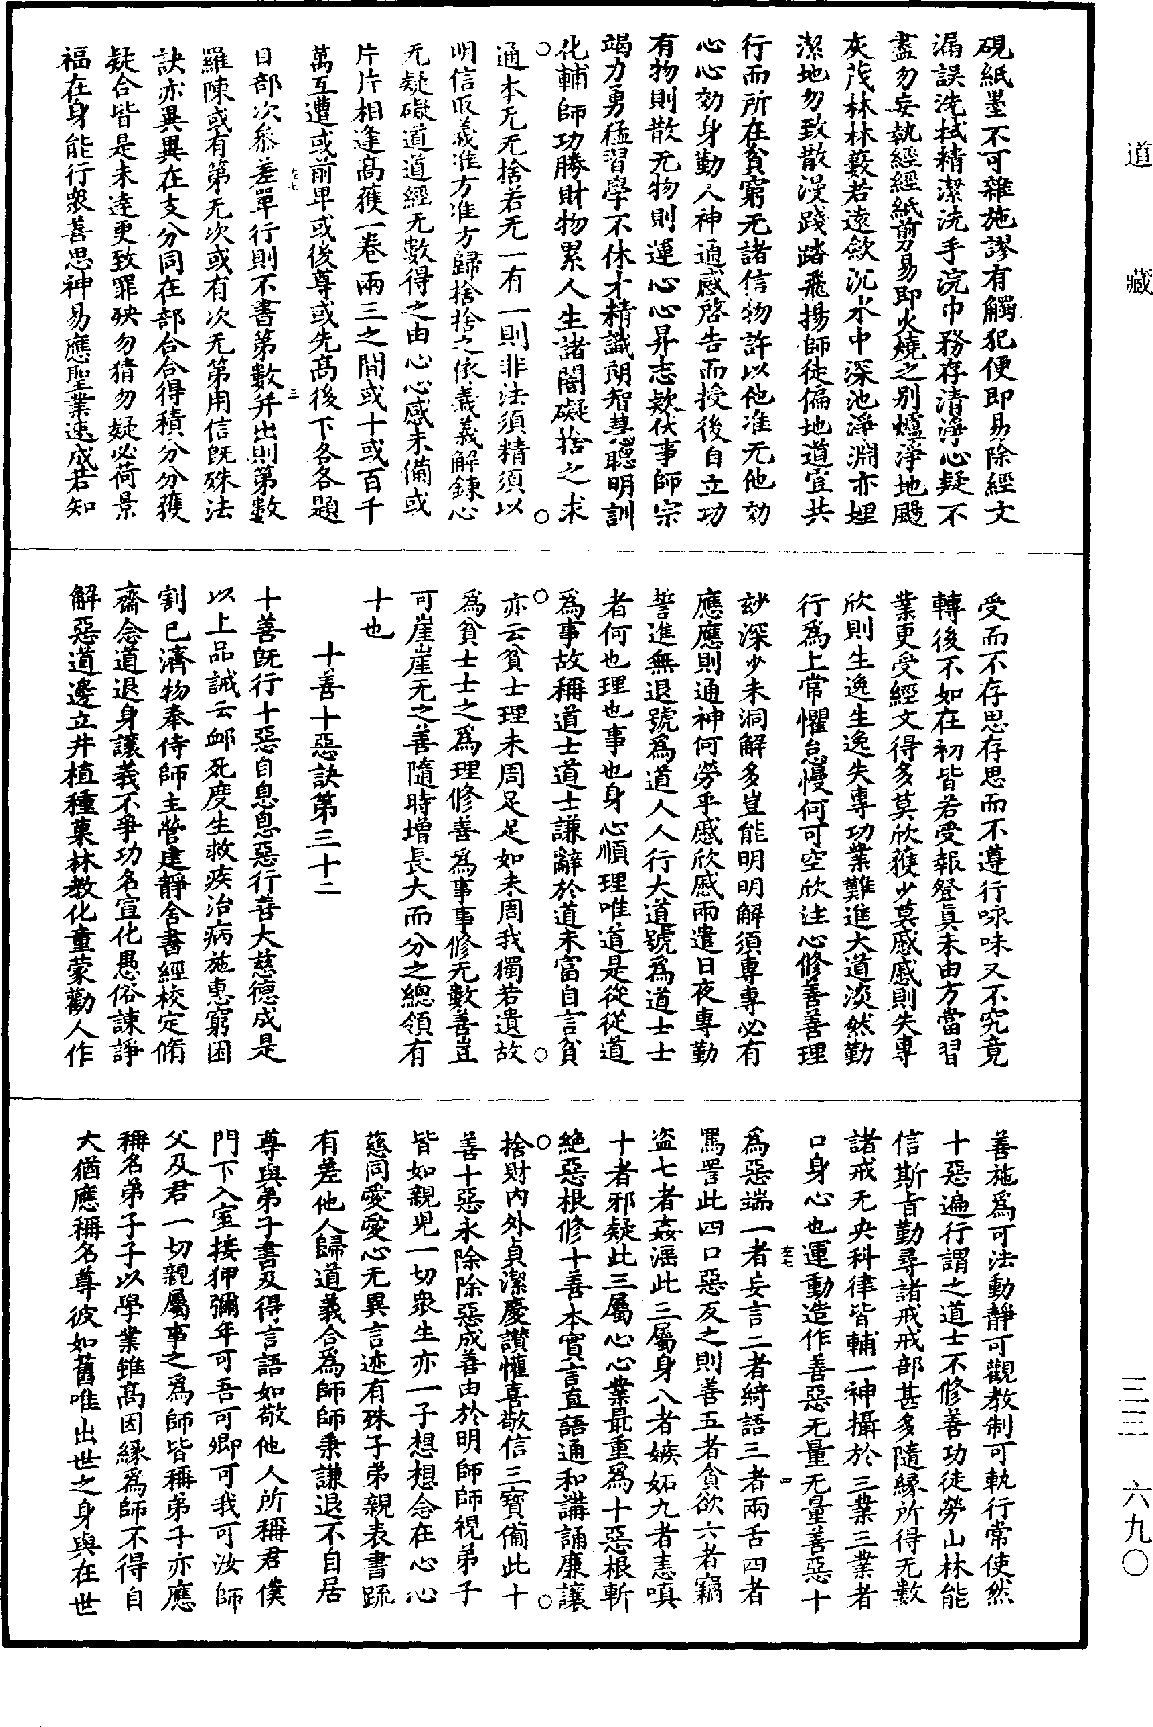 道藏
三三
六九〇
硯紙墨不可雜施謬有觸犯便即易除經文
漏誤洗拭精潔洗手浣巾務存清淨心疑不
盡勿妄執經經紙剪易即火燒之別爐淨地颺
灰茂林林藪若遠歛沉水中深池淨淵亦埋
潔地勿致散漫踐踏飛揚師徒偏地道宣共
行而所在貧窮无諸信物許以他准无他効
心心効身勤人神通感啓告而授後自立功
有物則散无物則運心心昇志欵伏事師宗
竭力勇猛習學不休才精識朗智慧聰明訓
化輔師功勝財物累人生諸闇礙捨之求
通本无无捨若无一有一則非法須精須以
明信取義准方准方歸捨捨之依義義解鍊心
无疑礙道道經无數得之由心心感未備或
片片相逢高獲一卷兩三之間或十或百千
萬互遭或前卑或後尊或先高後下各各題
目部次叅差單行則不書第數幷出則第數
羅陳或有第无次或有次无第用信旣殊法
訣亦異異在支分同在部合合得積分分獲
疑合皆是未達更致罪殃勿猜勿疑必荷景
福在身能行衆善思神易應聖業速成若知
受而不存思存思而不遵行咏味又不究竟
轉後不如在初皆若受報登真未由方當習
業更受經文得多莫欣獲少莫慼慼則失專
欣則生逸生逸失專功業難進大道淡然勤
行爲上常懼怠慢何可空欣注心修善善理
玅深少未洞解多豈能明明解須專專必有
應應則通神何勞乎慼欣慼兩遣日夜專勤
誓進無退號爲道人人行大道號爲道士士
者何也理也事也身心順理唯道是從從道
爲事故稱道士道士謙辭於道未富自言貧
亦云貧士理未周足足如未周我獨若遺故
爲貧士士之爲理修善爲事事修无數善豈
可崖崖无之善隨時增長大而分之總領有
十也
十善十惡訣第三十二
十善旣行十惡自息息惡行善大慈德成是
以上品誡云䘏死度生救疾治病施惠窮困
割己濟物奉侍師主營建靜舍書經校定脩
齋念道退身讓義不爭功名宣化愚俗諫諍
解惡道邊立井植種菓林教化童蒙勸人作
善施爲可法動靜可觀教制可軌行常使然
十惡遍行謂之道士不修善功徒勞山林能
信斯旨勤尋諸戒戒部甚多隨緣所得无數
諸戒无央科律皆輔一神攝於三業三業者
口身心也運動造作善惡无量无量善惡十
爲惡端一者妄言二者綺語三者兩舌四者
罵詈此四口惡反之則善五者貪欲六者竊
盜七者姦淫此三屬身八者嫉妬九者恚嗔
十者邪疑此三屬心心業最重爲十惡根斬
絶惡根修十善本實言直語通和講誦廉讓
捨財内外貞潔慶讃懽喜敬信三寶備此十
善十惡永除除惡成善由於明師師視弟子
皆如親兒一切衆生亦一子想想念在心心
慈同愛愛心无異言迹有殊子弟親表書䟽
有差他人歸道義合爲師師秉謙退不自居
尊與弟子書及得言語如敬他人所稱君僕
門下入室接狎彌年可吾可卿可我可汝師
父及君一切親屬事之爲師皆稱弟子亦應
稱名弟子子以學業雖高因緣爲師不得自
大猶應稱名尊彼如舊唯出世之身與在世